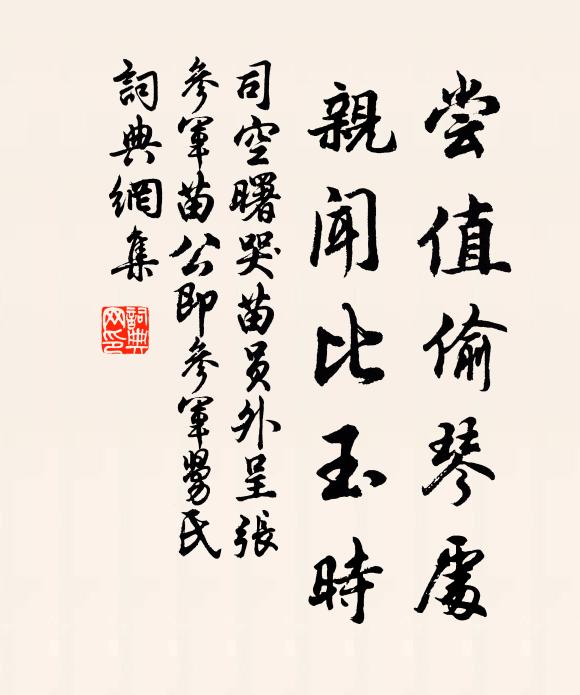 尝值偷琴處
親聞比玉時
司空曙哭苗员外呈張
參軍苗公即參軍舅氏
詞典網集
詞典
网印